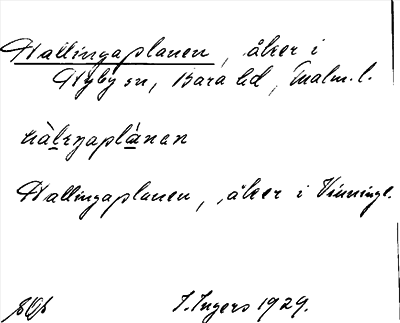 Hallingaplanen, åker i
Hyby sn, Bara hd, Malm. l.
hàlıŋaplànan
Hallingaplanen, åker i Vinninge.
I. Ingers 1929.